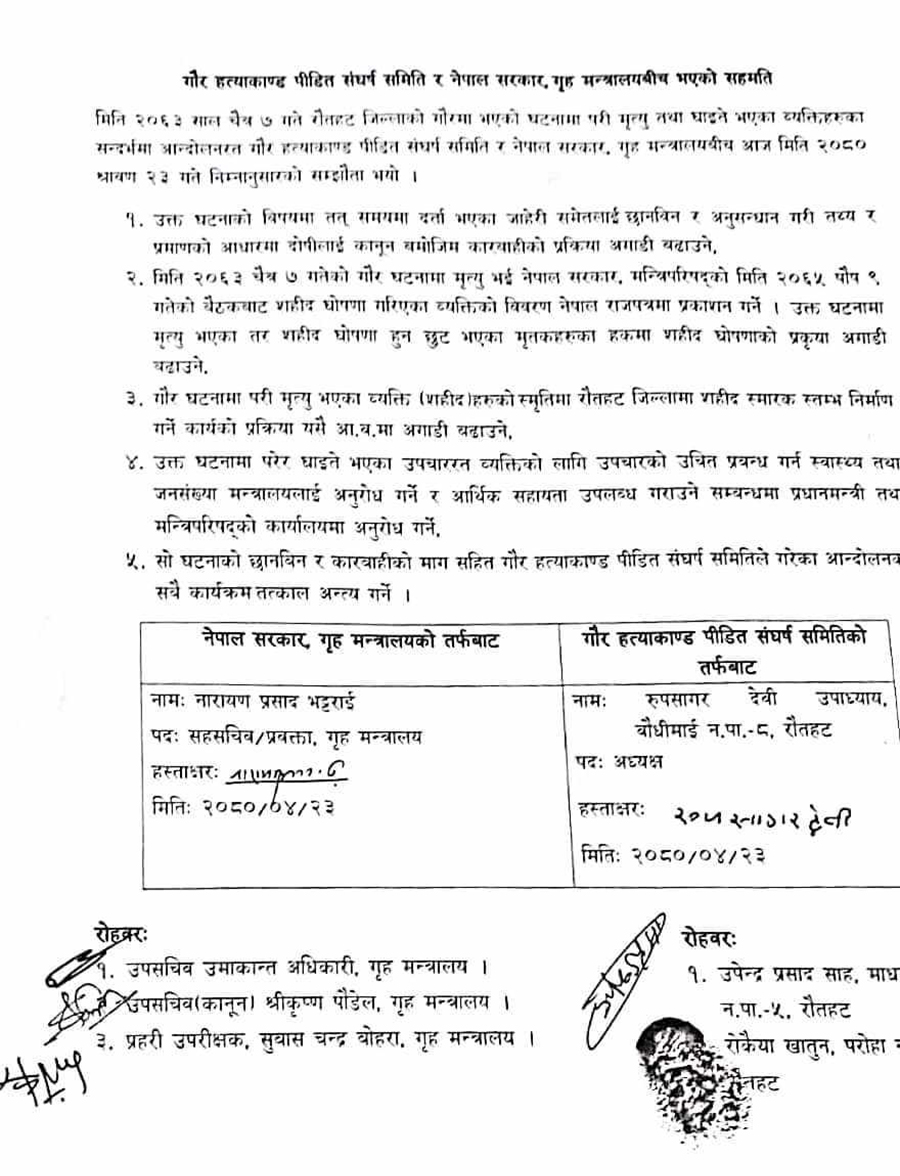 गौर हत्याकाण्ड पीडित संघर्ष समिति र नेपाल सरकार, गृह मन्त्रालयबीच भएको सहमति
मिति २०६३ साल चैत्र ७ गते रौतहट जिल्लाको गौरमा भएको घटनामा परी मृत्यु तथा घाइते भएका व्यक्तिहरुका
सन्दर्भमा आन्दोलनरत गौर हत्याकाण्ड पीडित संघर्ष समिति र नेपाल सरकार, गृह मन्त्रालयबीच आज मिति २०८०
श्रावण २३ गते निम्नानुसारको सम्झौता भयो ।
१. उक्त घटनाको विषयमा तत् समयमा दर्ता भएका जाहेरी समेतलाई छानविन र अनुसन्धान गरी तथ्य र
प्रमाणको आधारमा दोषीलाई कानून बमोजिम कारबाहीको प्रक्रिया अगाडी बढाउने,
२. मिति २०६३ चैत्र ७ गतेको गौर घटनामा मृत्यु भई नेपाल सरकार, मन्त्रिपरिषद्को मिति २०६५ पौष ९
गतेको बैठकबाट शहीद घोषणा गरिएका व्यक्तिको विवरण नेपाल राजपत्रमा प्रकाशन गर्ने । उक्त घटनामा
मृत्यु भएका तर शहीद घोषणा हुन छुट भएका मृतकहरुका हकमा शहीद घोषणाको प्रकृया अगाडी
बढाउने,
३. गौर घटनामा परी मृत्यु भएका व्यक्ति (शहीद)हरुको स्मृतिमा रौतहट जिल्लामा शहीद स्मारक स्तम्भ निर्माण
गर्ने कार्यको प्रक्रिया यसै आ.व.मा अगाडी बढाउने,
४. उक्त घटनामा परेर घाइते भएका उपचाररत व्यक्तिको लागि उपचारको उचित प्रवन्ध गर्न स्वास्थ्य तथा
जनसंख्या मन्त्रालयलाई अनुरोध गर्ने र आर्थिक सहायता उपलब्ध गराउने सम्बन्धमा प्रधानमन्त्री तथ
मन्त्रिपरिषद्को कार्यालयमा अनुरोध गर्ने,
५. सो घटनाको छानविन र कारबाहीको माग सहित गौर हत्याकाण्ड पीडित संघर्ष समितिले गरेका आन्दोलनक
सबै कार्यक्रम तत्काल अन्त्य गर्ने ।
नेपाल सरकार, गृह मन्त्रालयको तर्फबाट
नामः नारायण प्रसाद भट्टराई
पदः सहसचिव/प्रवक्ता, गृह मन्त्रालय
हस्ताक्षरः
मितिः २०८०/०४/२३
गौर हत्याकाण्ड पीडित संघर्ष समितिको
तर्फबाट
नामः रुपसागर देवी उपाध्याय,
बौधीमाई न.पा.-८, रौतहट
पदः अध्यक्ष
हस्ताक्षरः रुपसागर देवी
मितिः २०८०/०४/२३
रोहवरः
१. उपसचिव उमाकान्त अधिकारी, गृह मन्त्रालय ।
उपसचिव(कानून) श्रीकृष्ण पौडेल, गृह मन्त्रालय ।
३. प्रहरी उपरीक्षक, सुवास चन्द्र बोहरा, गृह मन्त्रालय ।
रोहवरः
१. उपेन्द्र प्रसाद साह, माध
न.पा.-५, रौतहट
रोकैया खातुन, परोहा न
रौतहट